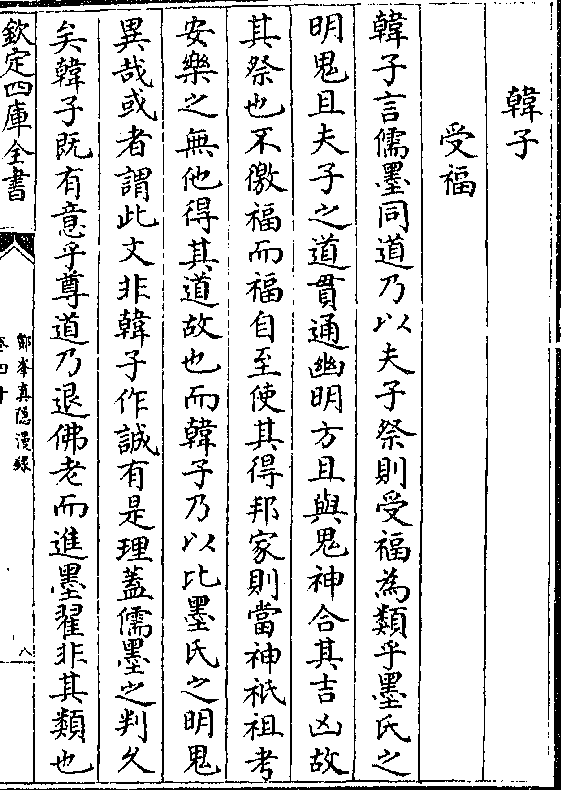 韓子
受福
韓子言儒墨同道乃以夫子祭則受福為類乎墨氏之
明鬼且夫子之道貫通幽明方且與鬼神合其吉凶故
其祭也不徼福而福自至使其得邦家則當神祇祖考
安樂之無他得其道故也而韓子乃以比墨氏之明鬼
異哉或者謂此文非韓子作誠有是理蓋儒墨之判久
矣韓子既有意乎尊道乃退佛老而進墨翟非其類也
欽定四庫全書
鄮峯真隱漫録
卷四十
八